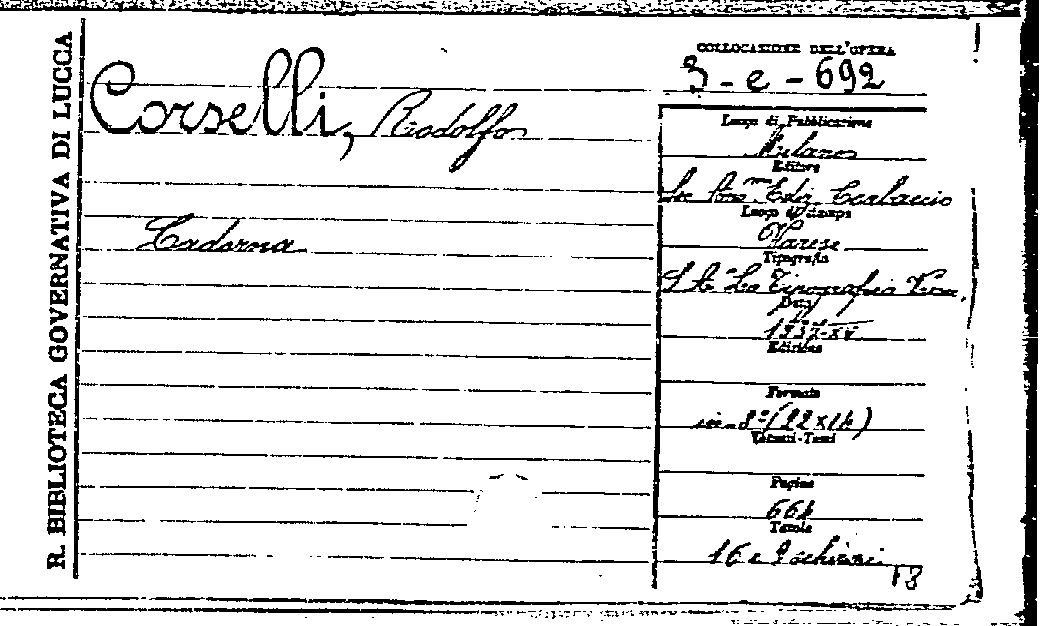 R. BIBLIOTECA GOVERNATIVA DI LUCCA
Corselli, Rodolfo
Cadorna
COLLOCAZIONE DELL'OPERA
3-e-692
Luogo di Pubblicazione
Milano
Editore
Soc An.ma Ediz Corbaccio
Luogo di stampa
Varese
Tipografia
S A La Tipografica Varese
Data
1937-XV
Edizione
Formato
in-8º (22x14)
Volumi-Tomi
Pagine
664
Tavole
16 e 9 schizzi